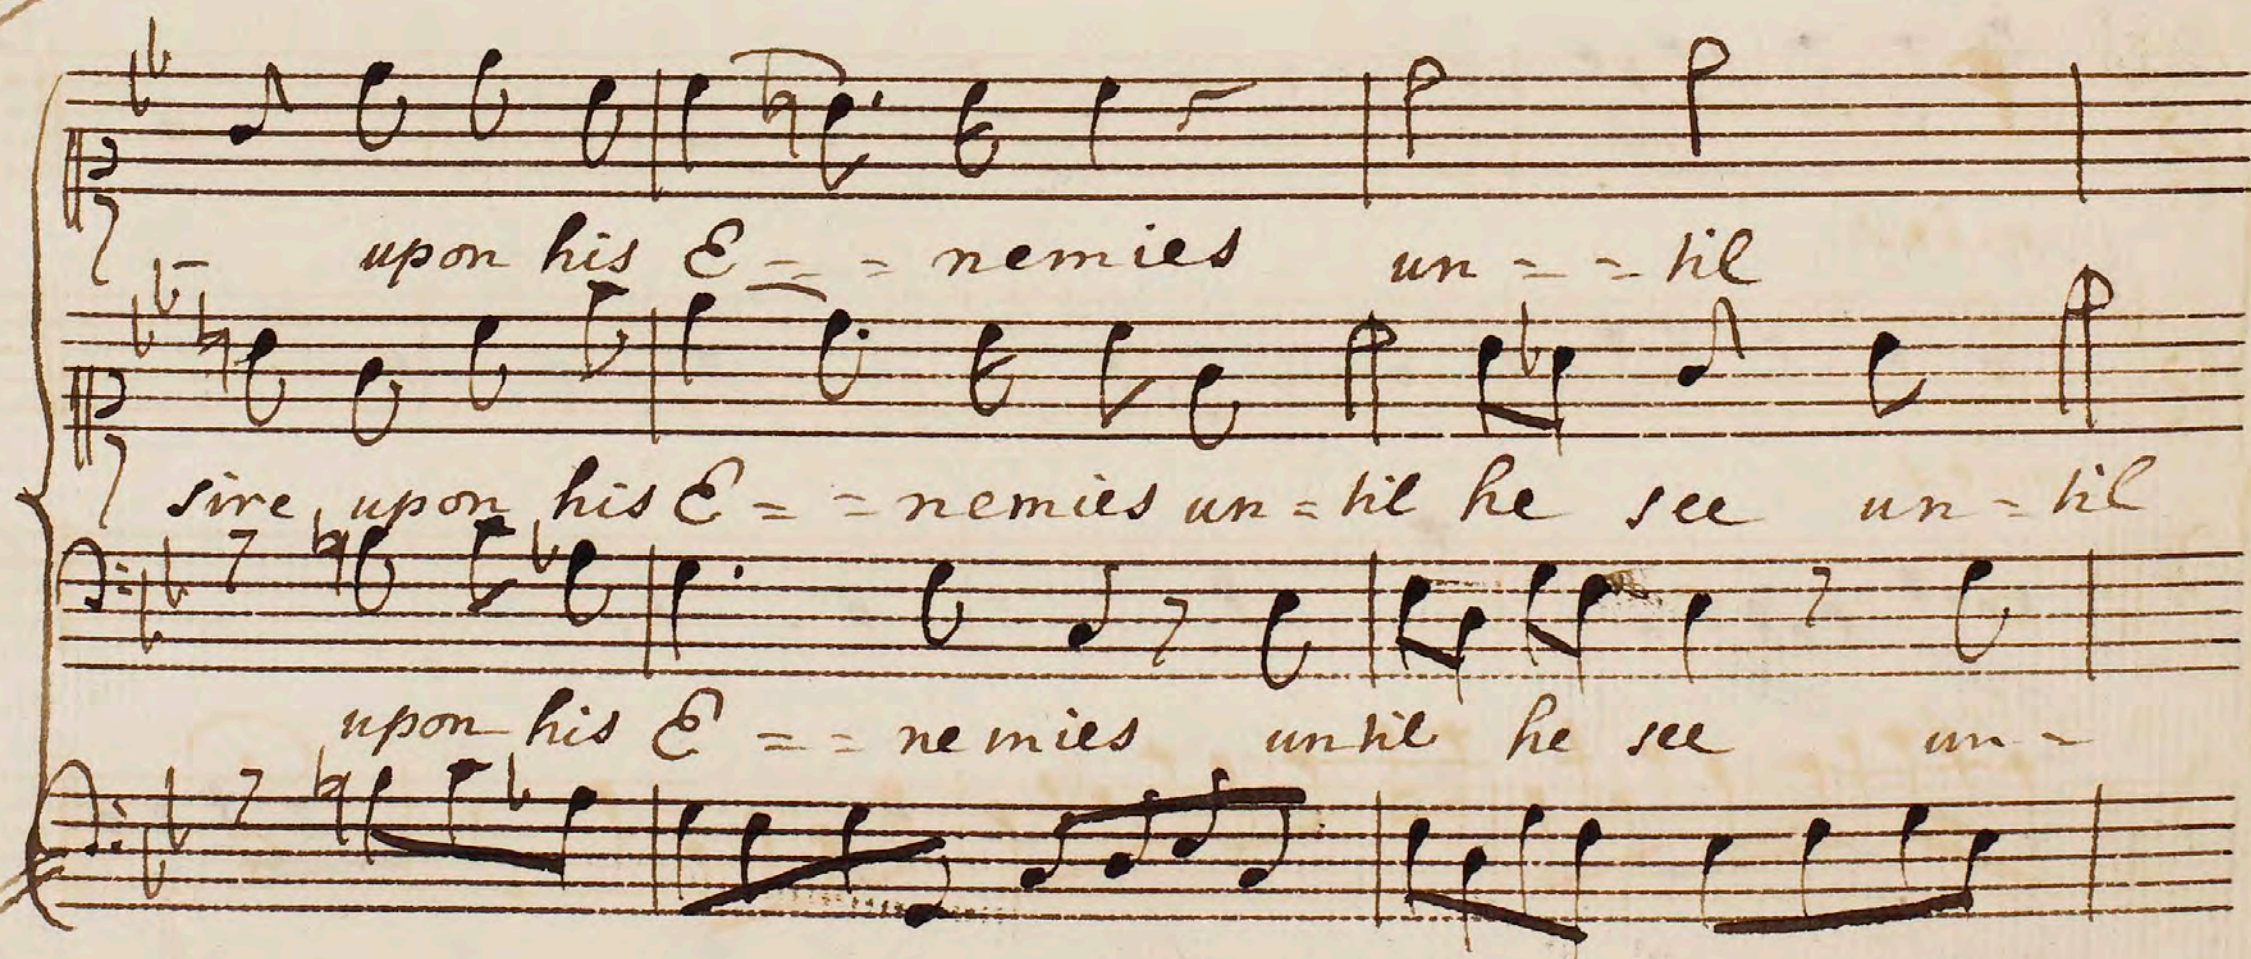 – upon his E = = = nemies un = = = til
sire upon his E = = nemies un = til he see un = til
upon his E = = nemies until he see un =